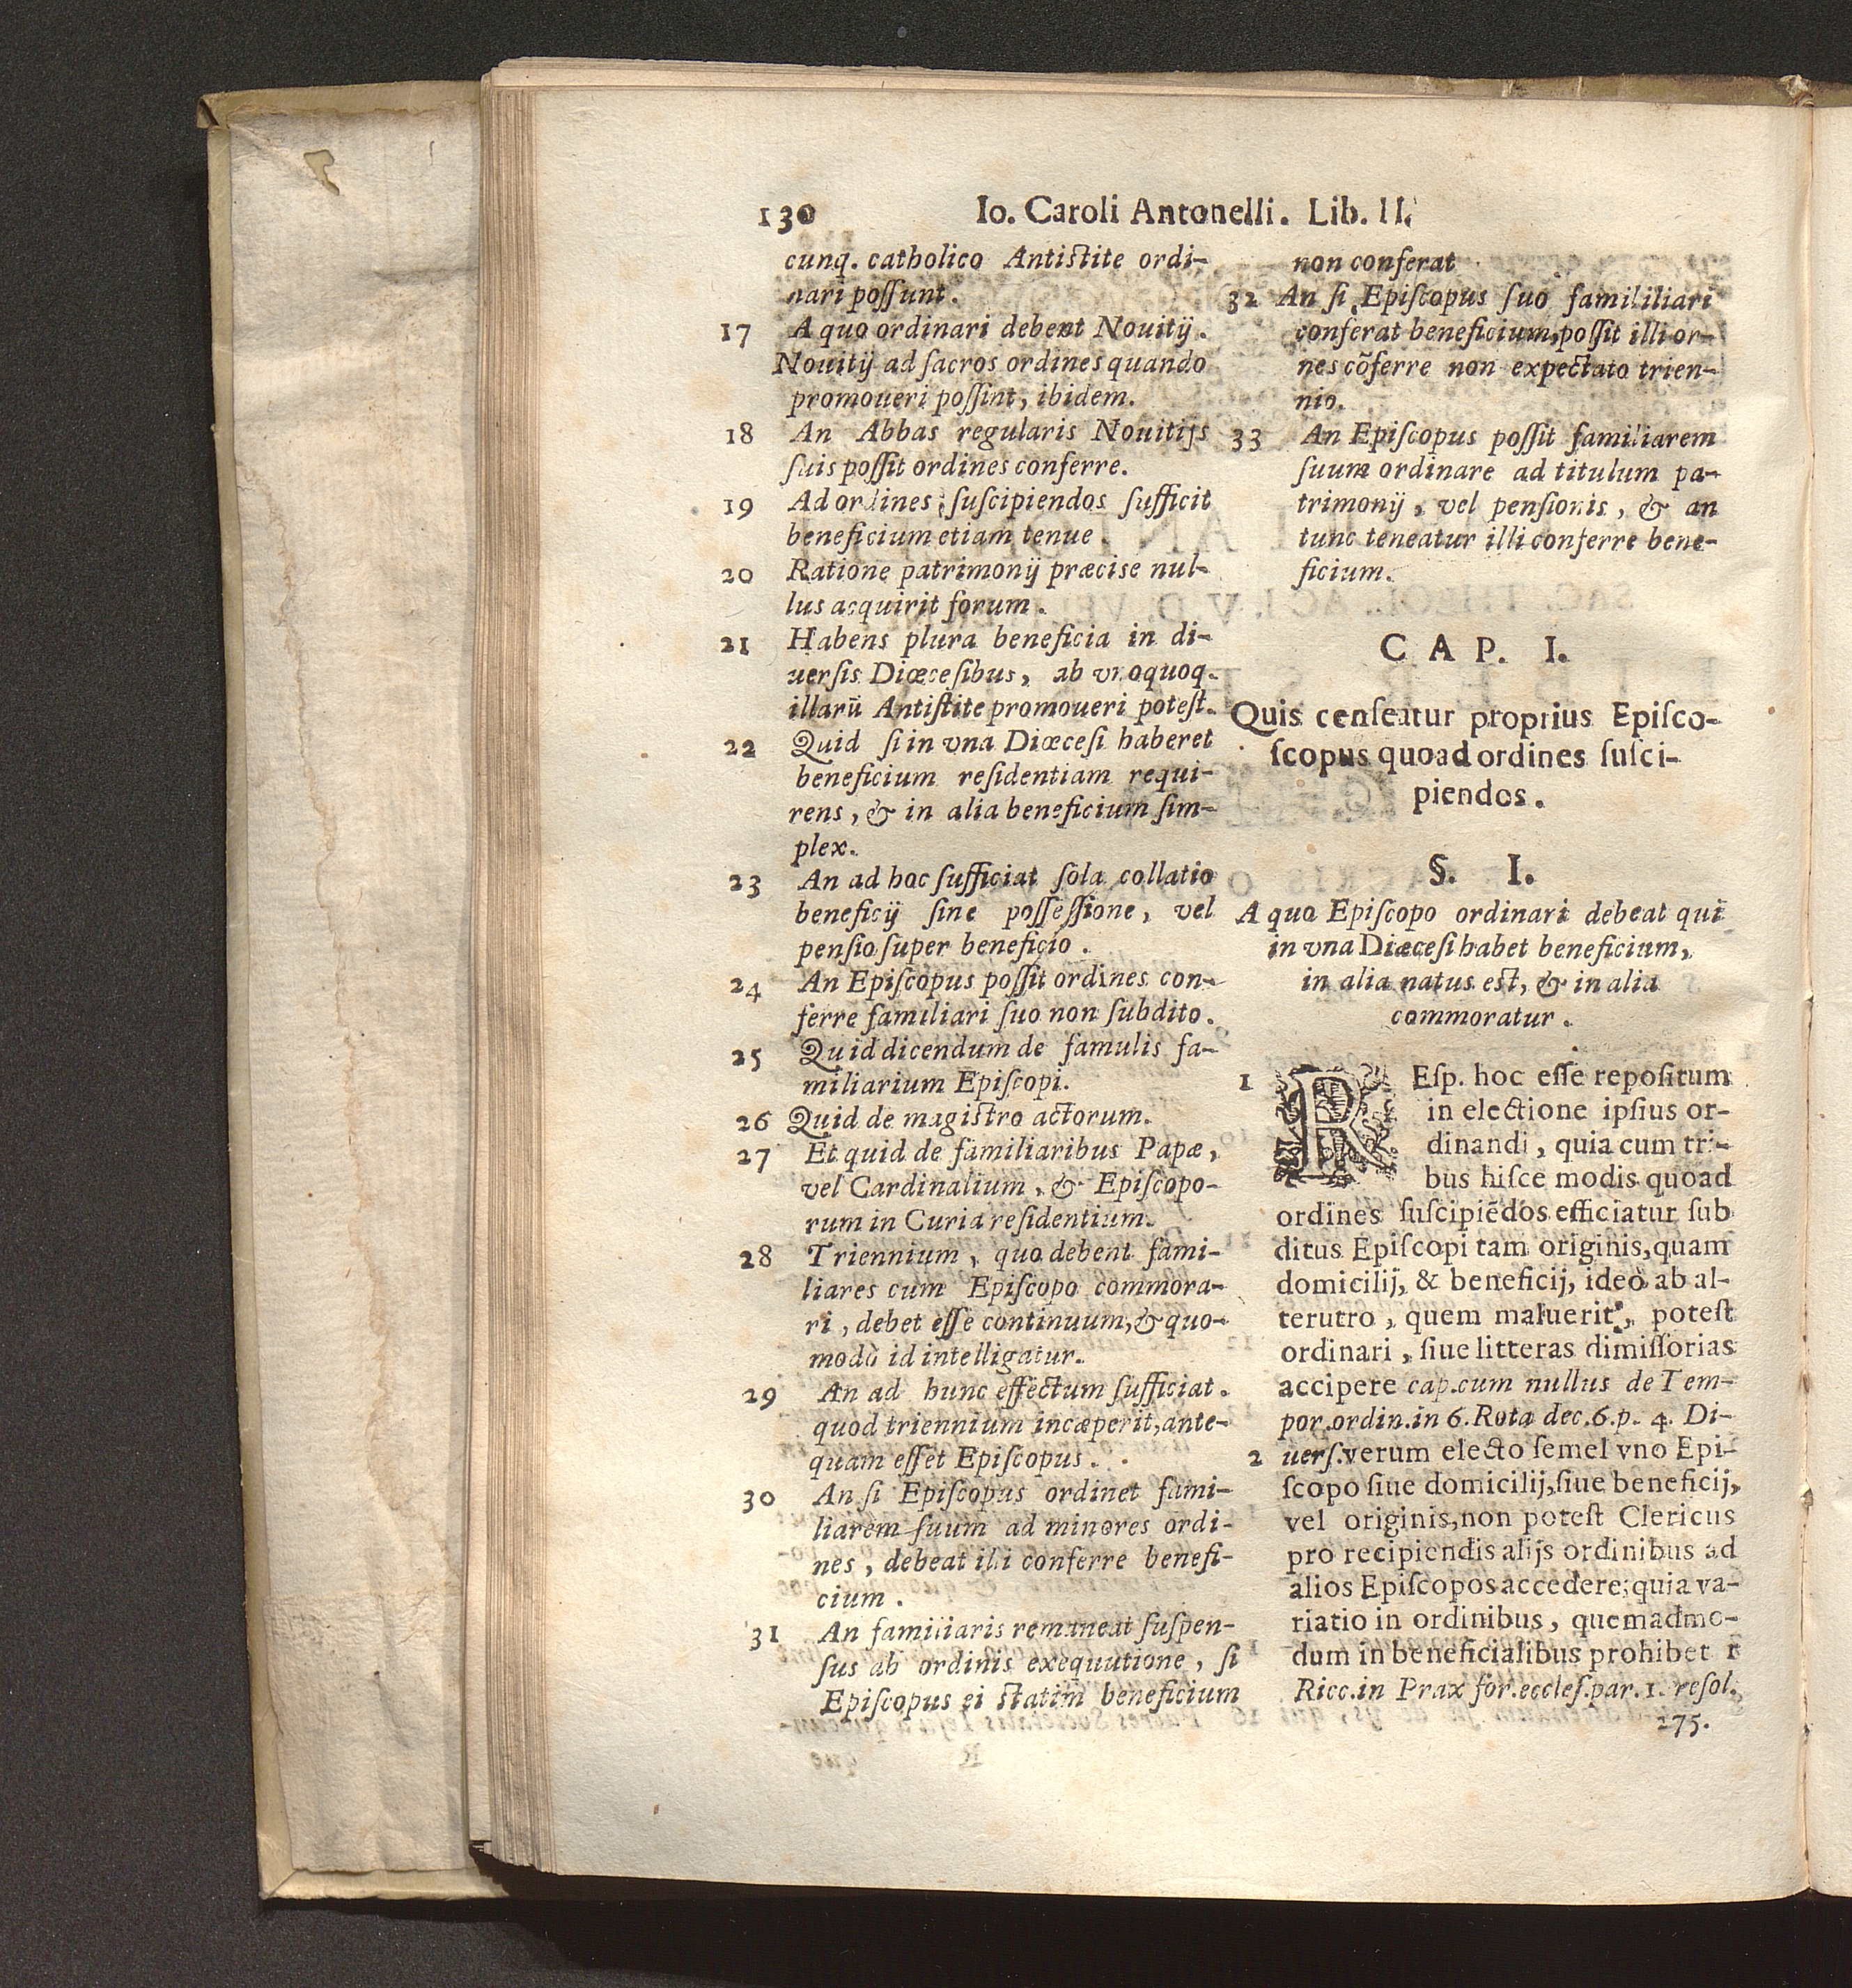 130 Io. Caroli Antonelli. Lib. II.
cunq. catholico Antistite ordi-
nari poſſunt.
17 A quo ordinari debent Nouitij.
Nouitij ad ſacros ordines quando
promoueri poſſint, ibidem.
18 An Abbas regularis Nouitijs
ſuis poſſit ordines conferre.
19 Ad ordines ſuſcipiendos ſufficit
beneficium etiam tenue.
20 Ratione patrimonij præcise nul-
lus acquirit forum.
21 Habens plura beneficia in di-
uerſis Diœceſibus, ab vnoquoq.
illarū Antiſtite promoueri poteſt.
22 Quid ſi in vna Diœceſi haberet
beneficium reſidentiam requi-
rens, & in alia beneficium ſim-
plex.
23 An ad hoc ſufficiat ſola collatio
beneficij ſine poſſeſſione, vel
penſio ſuper beneficio.
24 An Epiſcopus poſſit ordines con-
ferre familiari ſuo non ſubdito.
25 Quid dicendum de famulis fa-
miliarium Epiſcopi.
26 Quid de magistro actorum.
27 Et quid de familiaribus Papæ,
vel Cardinalium, & Epiſcopo-
rum in Curia reſidentium.
28 Triennium, quo debent fami-
liares cum Epiſcopo commora-
ri, debet eſſe continuum, & quo-
modò id intelligatur.
29 An ad hunc effectum ſufficiat.
quod triennium incæperit, ante-
quam eſſet Epiſcopus.
30 An ſi Epiſcopus ordinet fami-
liarem ſuum ad minores ordi-
nes, debeat illi conferre benefi-
cium.
31 An familiaris remaneat ſuſpen-
ſus ab ordinis exequutione, ſi
Epiſcopus ei statim beneficium
non conferat
32 An ſi Epiſcopus ſuo famililiari
conferat beneficium, poſſit illi or-
nes cōferre non expectato trien-
nio.
33 An Epiſcopus poſſit familiarem
ſuum ordinare ad titulum pa-
trimonij, vel penſionis, & an
tunc teneatur illi conferre bene-
ficium.
CAP. I.
Quis cenſeatur proprius Epiſco-
ſcopus quoad ordines ſuſci-
piendos.
§. I.
A quo Epiſcopo ordinari debeat qui
in vna Diœceſi habet beneficium,
in alia natus est, & in alia
commoratur.
1 REſp. hoc eſſe repoſitum
in electione ipſius or-
dinandi, quia cum tri-
bus hiſce modis quoad
ordines ſuſcipiēdos efficiatur ſub
ditus Epiſcopi tam originis, quam
domicilij, & beneficij, ideò ab al-
terutro, quem maluerit, poteſt
ordinari, ſiue litteras dimiſſorias
accipere cap. cum nullus de Tem-
por. ordin. in 6. Rota dec. 6. p. 4. Di-
2 uerſ. verum electo ſemel vno Epi-
ſcopo ſiue domicilij, ſiue beneficij,
vel originis, non poteſt Clericus
pro recipiendis alijs ordinibus ad
alios Epiſcopos accedere; quia va-
riatio in ordinibus, quemadmo-
dum in beneficialibus prohibet r
Ricc. in Prax for. eccleſ. par. 1. reſol.
275.